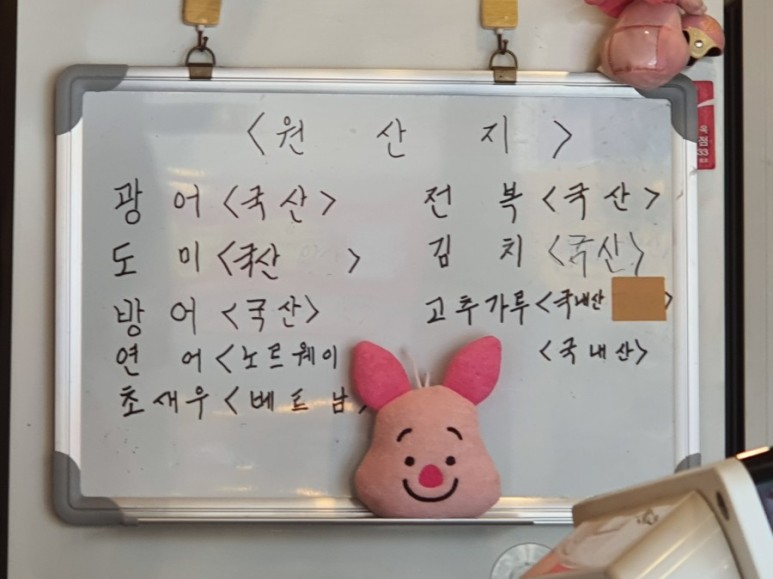 <원 산 지>
광 어 <국 산>
도 미 <국산 >
방 어 <국산>
연 어 <노르웨이
초새우 <베트남>
전 복 <국 산>
김 치 <국산>
고추가루 <국내산 >
<국내산>